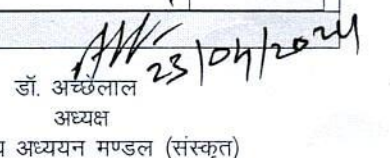 23/04/2024
डॉ. अच्छेलाल
अध्यक्ष
अध्ययन मण्डल (संस्कृत)